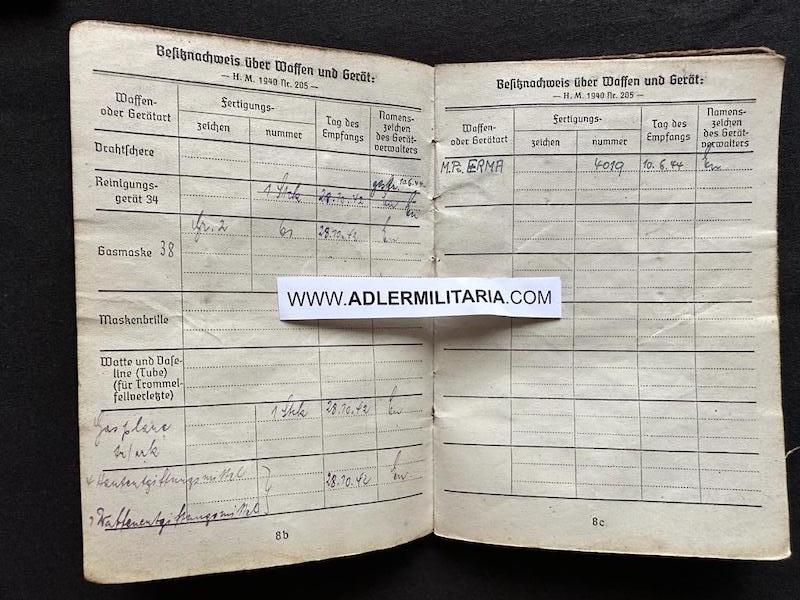 Besitznachweis über Waffen und Gerät:
— H. M. 1940 Nr. 205 —
Waffen-
oder Gerätart
Fertigungs-
zeichen
nummer
Tag des
Empfangs
Namens-
zeichen
des Gerät-
verwalters
Drahtschere
Reinigungs-
gerät 34
1 Stck 28.10.42
gestr. 10.6.44
Gasmaske 38
Gr. 2
28.10.42
Maskenbrille
Watte und Vase-
line (Tube)
(für Trommel-
fellverletzte)
Gasplane
1 Stck 28.10.42
Hautentgiftungsmittel
28.10.42
Waffenentgiftungsmittel
8b
Besitznachweis über Waffen und Gerät:
— H. M. 1940 Nr. 205 —
Waffen-
oder Gerätart
Fertigungs-
zeichen
nummer
Tag des
Empfangs
Namens-
zeichen
des Gerät-
verwalters
M.Pi. ERMA 4019 10.6.44
8c
WWW.ADLERMILITARIA.COM